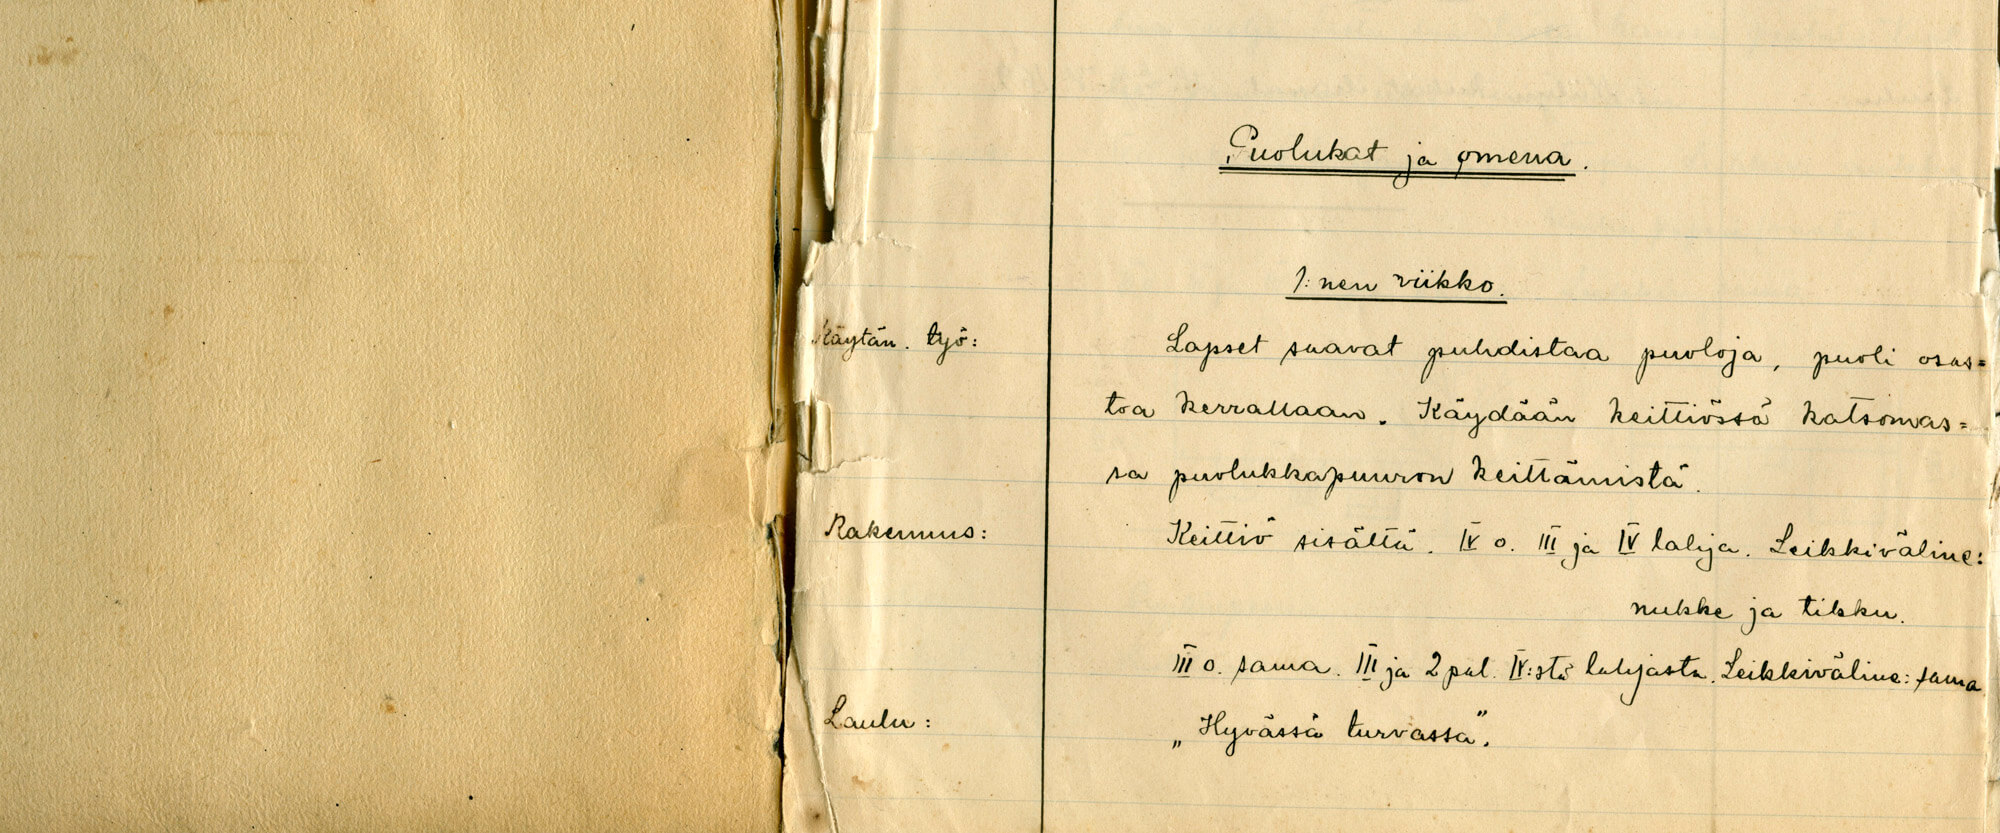 Puolukat ja omena.
1:nen viikko.
Käytän. työ: Lapset saavat puhdistaa puoloja, puoli osas=
toa kerrallaan. Käydään keittiössä katsomas=
sa puolukkapuuron keittämistä.
Rakennus: Keittiö sisältä. IV o. III ja IV lahja. Leikkiväline:
nukke ja tikku.
III o. sama. III ja 2 pal. IV:stä lahjasta. Leikkiväline: sama
Laulu: „Hyvässä turvassa”.